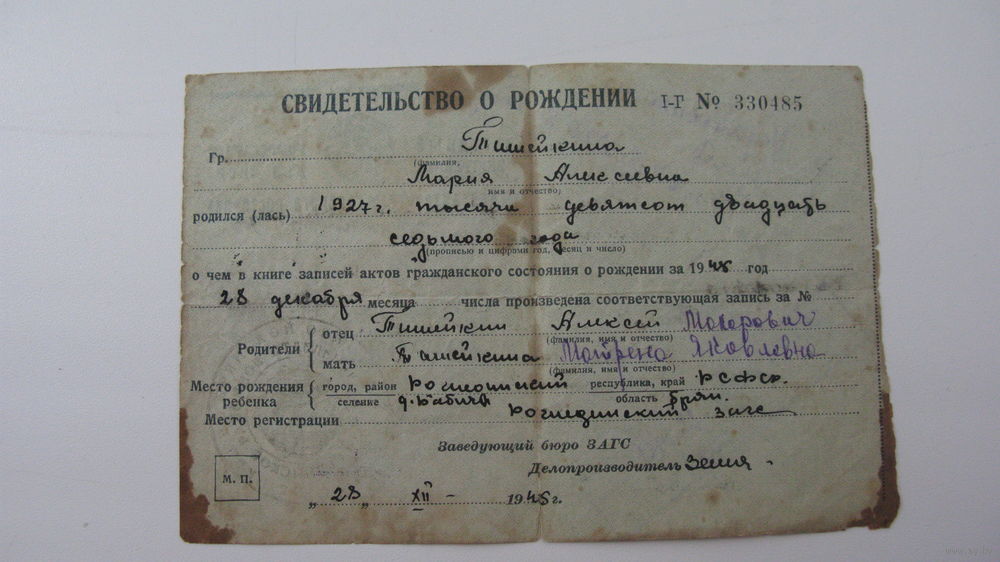 СВИДЕТЕЛЬСТВО О РОЖДЕНИИ I-Г № 330485
Гр. Тишейкина
(фамилия,
Мария Алексеевна
имя и отчество)
родился (лась) 1927 г. тысяча девятсот двадцать
седьмого года
(прописью и цифрами год, месяц и число)
о чем в книге записей актов гражданского состояния о рождении за 19 год
28 декабря месяца числа произведена соответствующая запись за №
Родители
отец Тишейкин Алексей Макарович
(фамилия, имя и отчество)
мать Тишейкина Матрена Яковлевна
(фамилия, имя и отчество)
Место рождения ребенка
город, район Рогнединский республика, край РСФСР.
селение область Брян.
Место регистрации Рогнединский загс
Заведующий бюро ЗАГС
Делопроизводитель
М. П.
„28„ XII 19 г.